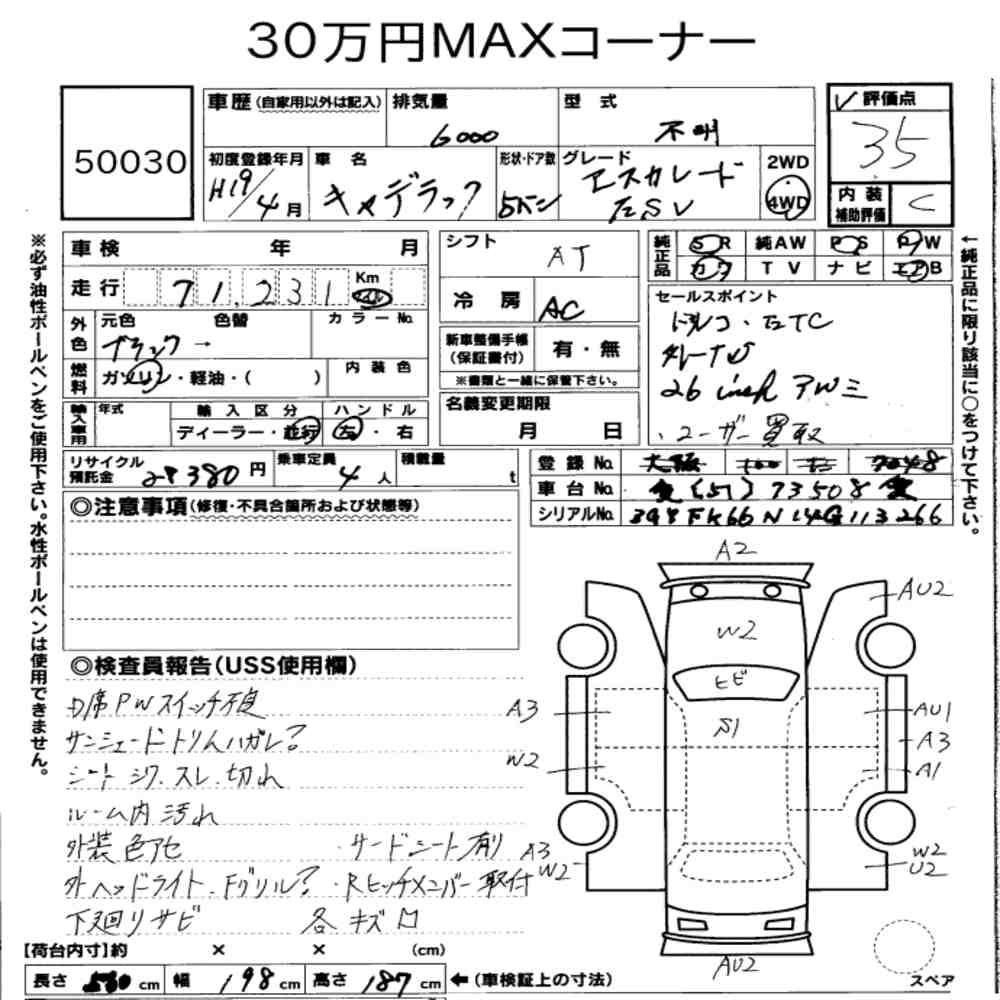 30万円MAXコーナー
50030
車歴(自家用以外は記入)
排気量
6000
型式
不明
✓評価点
35
初度登録年月
H19/4月
車名
キャデラック
形状・ドア数
5ドン
グレード
エスカレード
ESV
2WD
4WD
内装
補助評価
C
車検 年 月
シフト
AT
純正品
SR 純AW PS PW
カワ TV ナビ エアB
走行
71,231
Km
マイル
冷房
AC
セールスポイント
外色
元色 色替 カラーNo.
ブラック →
新車整備手帳
(保証書付)
有・無
※書類と一緒に保管下さい。
26 inch アWミ
・ユーザー買取
燃料
ガソリン・軽油・( )
内装色
輸入車用
年式
輸入区分
ディーラー・並行
ハンドル
左・右
名義変更期限
月 日
リサイクル
預託金
28380円
乗車定員
4人
積載量
t
登録No.
大阪 100
車台No.
(51)73508
シリアルNo.
3G8FK66N14G113266
◎注意事項(修復・不具合箇所および状態等)
◎検査員報告(USS使用欄)
D席PWスイッチ不良
サンシェードトリムハガレ?
シートシワ.スレ.切れ
ルーム内汚れ
外装色アセ ・サードシート有り
外ヘッドライト.Fグリル? ・Rヒッチメンバー取付
下廻りサビ 各キズ凹
A2
AU2
W2
ヒビ
S1
A3
AU1
A3
W2
A1
A3
W2
W2
U2
AU2
スペア
【荷台内寸】約 × × (cm)
長さ 560cm 幅 198cm 高さ 187cm ←(車検証上の寸法)
※必ず油性ボールペンをご使用下さい。水性ボールペンは使用できません。
←純正品に限り該当に○をつけて下さい。